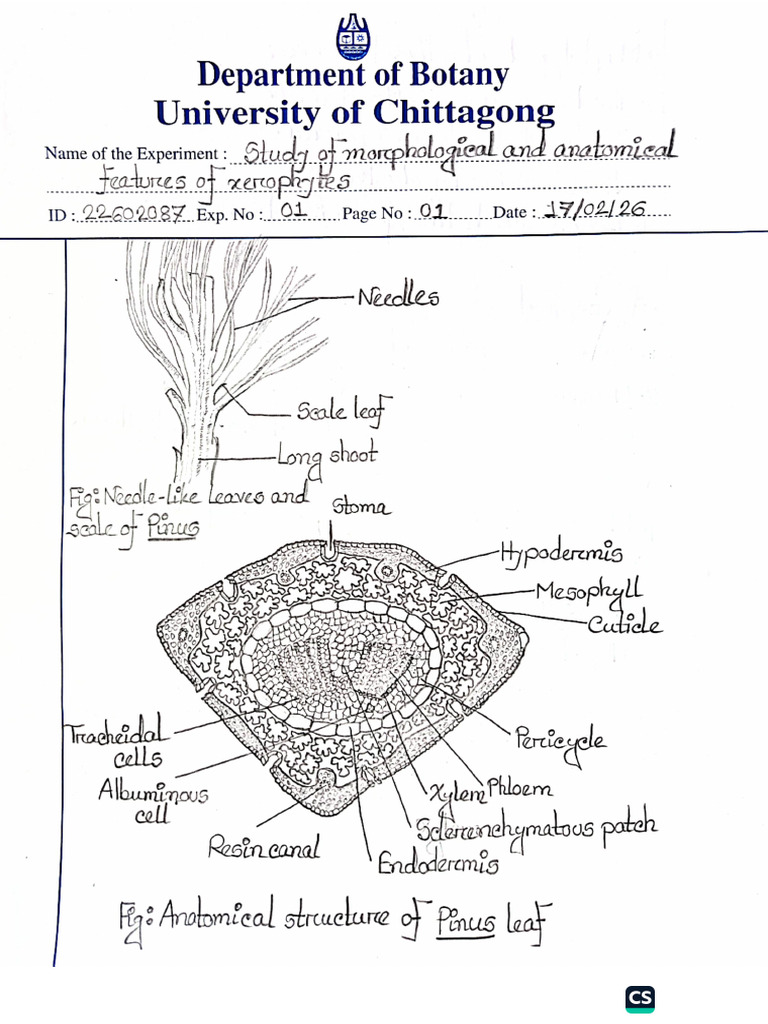 Department of Botany
University of Chittagong
Name of the Experiment : Study of morphological and anatomical
features of xerophytes
ID : 22602087 Exp. No : 01 Page No : 01 Date : 17/02/26
Needles
Scale leaf
Long shoot
Fig: Needle-like leaves and
scale of Pinus
Stoma
Hypodermis
Mesophyll
Cuticle
Tracheidal
cells
Pericycle
Albuminous
cell
Xylem
Phloem
Sclerenchymatous patch
Resin canal
Endodermis
Fig: Anatomical structure of Pinus leaf
CS